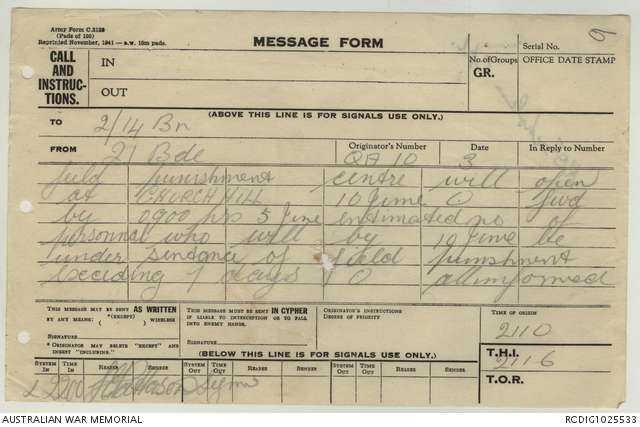 Army Form C.2128
(Pads of 100)
Reprinted November, 1941 — a.w. 10m pads.
MESSAGE FORM
Serial No.
9
CALL
AND
INSTRUC-
TIONS.
IN
OUT
No. of Groups
GR.
OFFICE DATE STAMP
(ABOVE THIS LINE IS FOR SIGNALS USE ONLY.)
TO 2/14 Bn
FROM 21 Bde
Originator's Number QA 10
Date 3
In Reply to Number
field punishment centre will open
at CHURCH HILL 10 June O fwd
by 0900 hrs 5 June estimated no of
personnal who will by 10 June be
under sendance of field punshment
exceding 7 days O all informed
THIS MESSAGE MAY BE SENT AS WRITTEN
BY ANY MEANS. (*(EXCEPT) ) WIRELESS
SIGNATURE
* ORIGINATOR MAY DELETE "EXCEPT" AND
INSERT "INCLUDING."
THIS MESSAGE MUST BE SENT IN CYPHER
IF LIABLE TO INTERCEPTION OR TO FALL
INTO ENEMY HANDS.
SIGNATURE
ORIGINATOR'S INSTRUCTIONS
DEGREE OF PRIORITY
TIME OF ORIGIN
2110
(BELOW THIS LINE IS FOR SIGNALS USE ONLY.)
T.H.I.
2116
T.O.R.
SYSTEM IN TIME IN READER SENDER SYSTEM OUT TIME OUT READER SENDER SYSTEM OUT TIME OUT READER SENDER
2200
AUSTRALIAN WAR MEMORIAL
RCDIG1025533